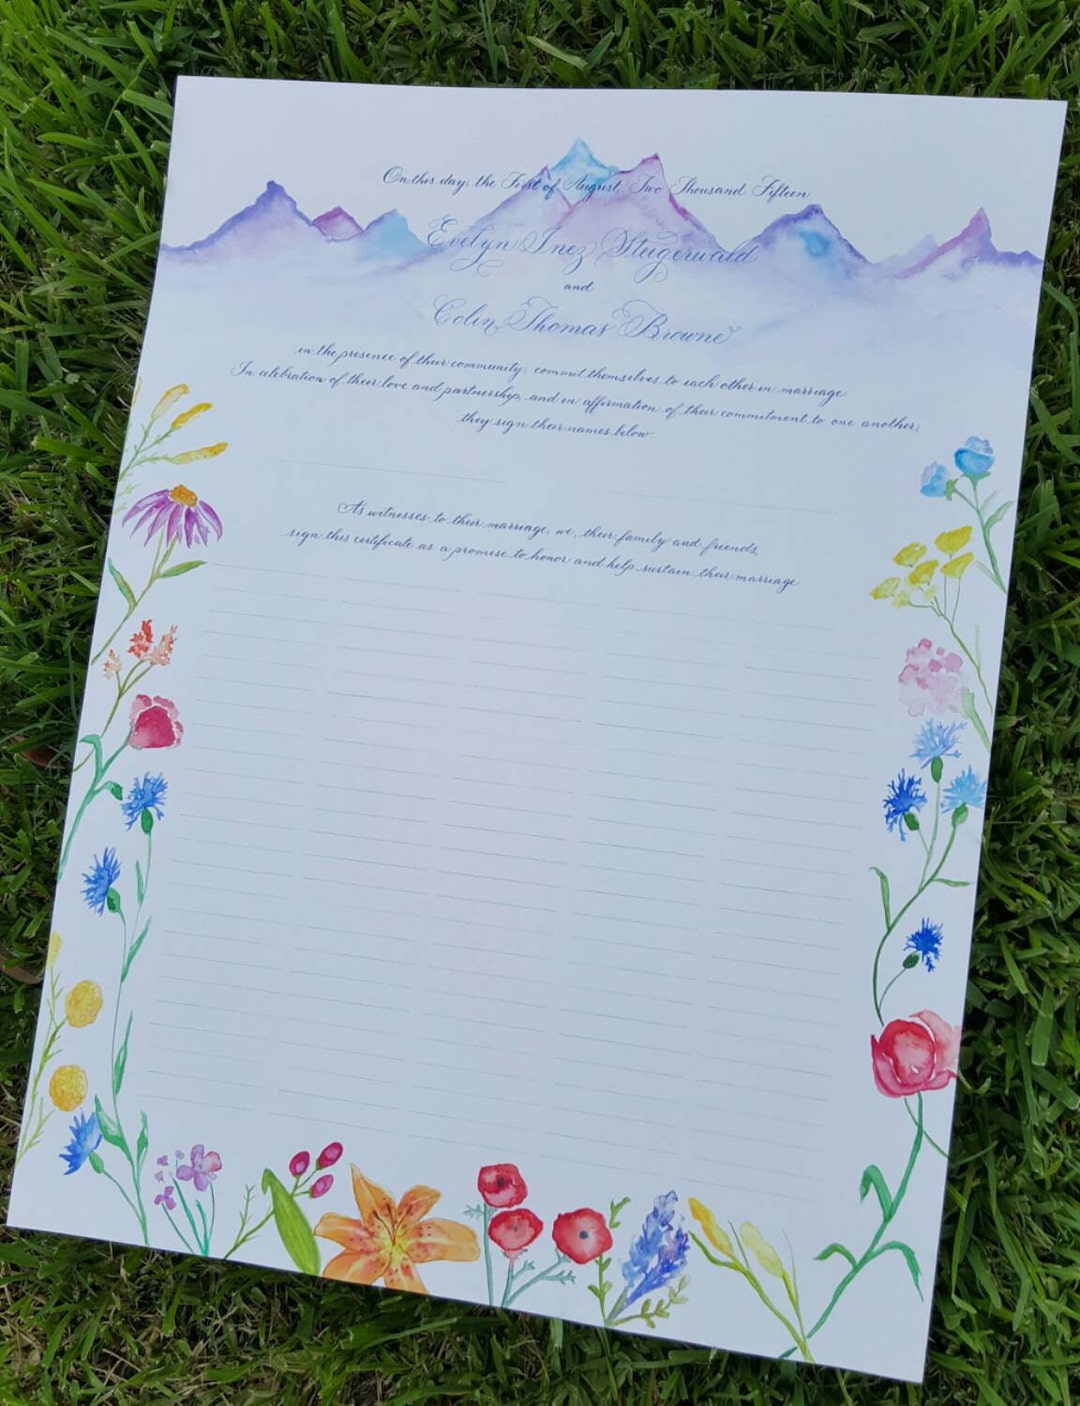 On this day, the First of August, Two Thousand Fifteen
Evelyn Inez Steigerwald
and
Colin Thomas Browne
in the presence of their community, commit themselves to each other in marriage
In celebration of their love and partnership, and in affirmation of their commitment to one another,
they sign their names below.
As witnesses to their marriage, we, their family and friends,
sign this certificate as a promise to honor and help sustain their marriage